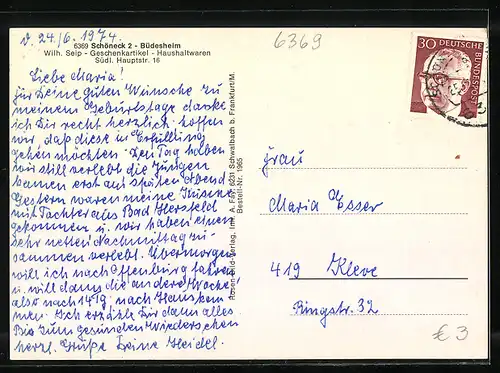 d. 24/6. 1974.
6369 Schöneck 2 - Büdesheim
Wilh. Seip - Geschenkartikel - Haushaltwaren
Südl. Hauptstr. 16
Liebe Maria!
für Deine guten Wünsche zu
meinem Geburtstage danke
ich Dir recht herzlich. hoffen
wir, daß diese in Erfüllung
gehen möchten. Den Tag haben
wir still verlebt die Jungen
kamen erst am späten Abend
Gestern waren meine
mit Tochter aus Bad Hersfeld
gekommen u. wir haben einen
sehr netten Nachmittag zu-
sammen verlebt. Übermorgen
will ich nach Offenburg fahren
u. will dann die andere Woche,
also nach 14 Tg. nach Haus kom-
men. Ich erzähle Dir dann alles.
Bis zum gesunden Wiedersehen
herzl. Grüße Deine Heidel.
Rosen-Bild-Verlag, Inh. A. Fay, 6231 Schwalbach b. Frankfurt/M.
Bestell-Nr. 1965
6369
30 DEUTSCHE
BUNDESPOST
Frau
Maria Esser
419 Kleve
Ringstr. 32
€ 3